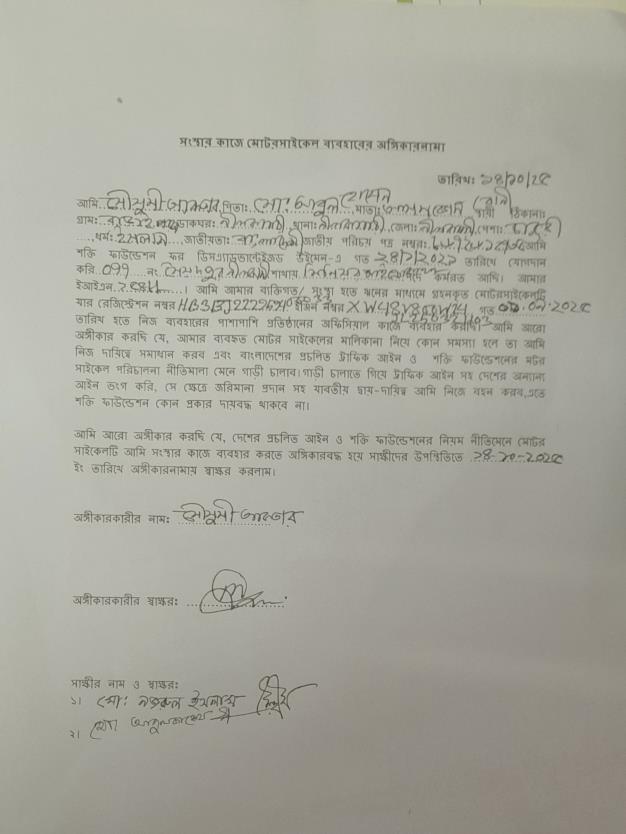 সংস্থার কাজে মোটরসাইকেল ব্যবহারের অঙ্গিকারনামা
তারিখ: ২৪/১০/২৫
আমি মৌসুমী আক্তার, পিতা: মো: আবুল হোসেন, মাতা: স্বামী ঠিকানা:
গ্রাম: ডাকঘর: নীলফামারী, থানা: নীলফামারী, জেলা: নীলফামারী, পেশা: চাকুরী
, ধর্ম: ইসলাম, জাতীয়তা: বাংলাদেশী জাতীয় পরিচয় পত্র নম্বর: আমি
শক্তি ফাউন্ডেশন ফর ডিসএ্যাডভান্টেইজড উইমেন-এ গত তারিখে যোগদান
করি. ০৭৭ নং সৈয়দপুর নীলফামারী শাখায় কর্মরত আছি। আমার
ইআইএন. । আমি আমার ব্যক্তিগত/ সংস্থা হতে ঋনের মাধ্যমে গ্রহনকৃত মোটরসাইকেলটি
যার রেজিস্টেশন নম্বর ইঞ্জিন নম্বর গত
তারিখ হতে নিজ ব্যবহারের পাশাপাশি প্রতিষ্ঠানের অফিসিয়াল কাজে ব্যবহার করছি। আমি আরো
অঙ্গীকার করছি যে, আমার ব্যবহৃত মোটর সাইকেলের মালিকানা নিয়ে কোন সমস্যা হলে তা আমি
নিজ দায়িত্বে সমাধান করব এবং বাংলাদেশের প্রচলিত ট্রাফিক আইন ও শক্তি ফাউন্ডেশনের মটর
সাইকেল পরিচালনা নীতিমালা মেনে গাড়ী চালাব। গাড়ী চালাতে গিয়ে ট্রাফিক আইন সহ দেশের অন্যান্য
আইন ভংগ করি, সে ক্ষেত্রে জরিমানা প্রদান সহ যাবতীয় দ্বায়-দায়িত্ব আমি নিজে বহন করব, এতে
শক্তি ফাউন্ডেশন কোন প্রকার দায়বদ্ধ থাকবে না।
আমি আরো অঙ্গীকার করছি যে, দেশের প্রচলিত আইন ও শক্তি ফাউন্ডেশনের নিয়ম নীতিমেনে মোটর
সাইকেলটি আমি সংস্থার কাজে ব্যবহার করতে অঙ্গিকারবদ্ধ হয়ে সাক্ষীদের উপস্থিতিতে ২৪-১০-২০২৫
ইং তারিখে অঙ্গীকারনামায় স্বাক্ষর করলাম।
অঙ্গীকারকারীর নাম: মৌসুমী আক্তার
অঙ্গীকারকারীর স্বাক্ষর:
সাক্ষীর নাম ও স্বাক্ষর:
১। মো: নজরুল ইসলাম
২। মোঃ